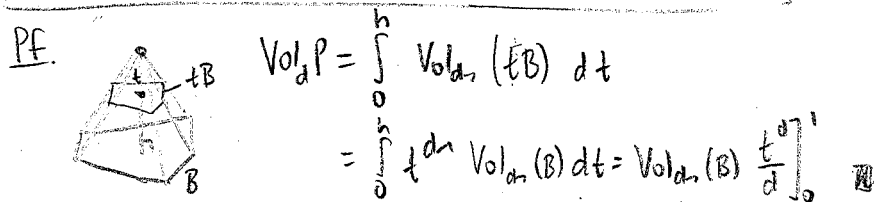 Pf. t tB h B Vol_d P = ∫_0^h Vol_{d-1} (tB) dt
= ∫_0^h t^{d-1} Vol_{d-1} (B) dt = Vol_{d-1} (B) t^d/d ]_0^1